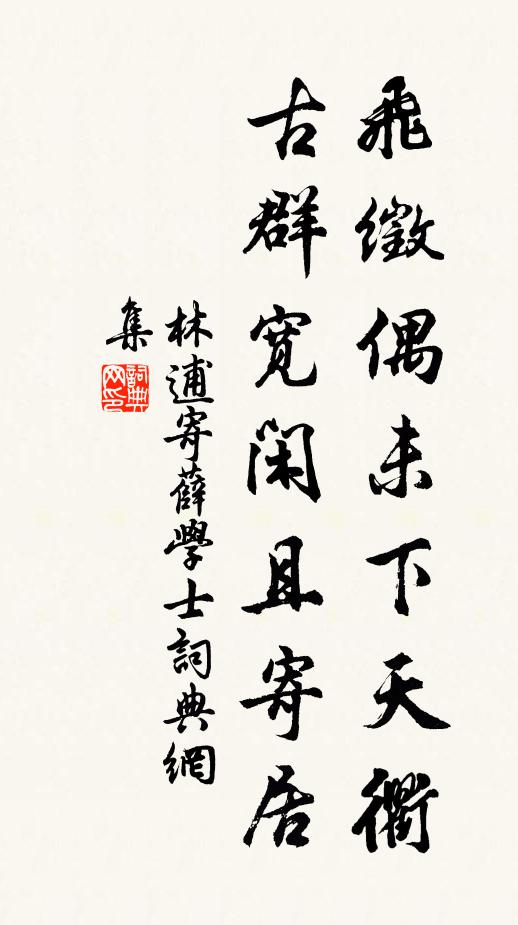 飛徵偶未下天衢
古群寬閑且寄居
林逋寄薛學士詞典網
集
詞典網印